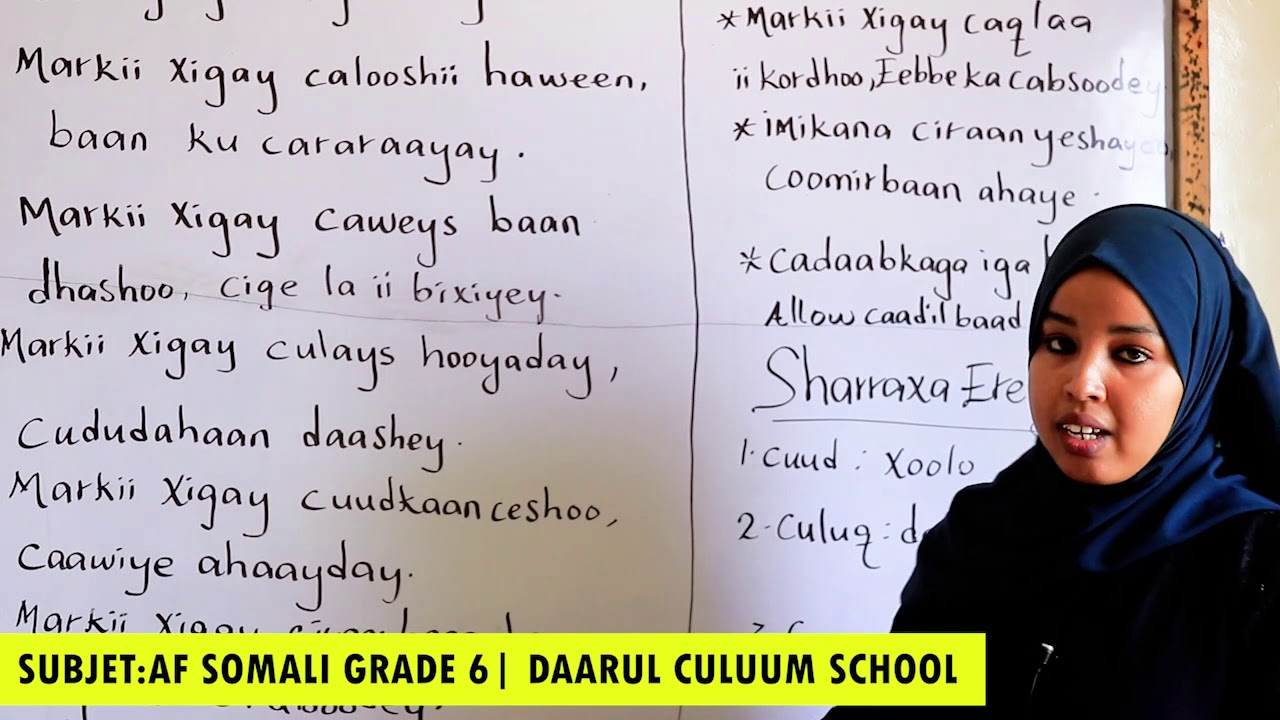 Markii xigay calooshii haween,
baan ku cararaayay.
Markii xigay caweys baan
dhashoo, cige la ii bixiyey.
Markii xigay culays hooyaday,
Cududahaan daashey.
Markii xigay cuudkaan ceshoo,
Caawiye ahaayday.
Markii xigay
*Markii xigay caqlaa
ii kordhoo, Eebbe ka cabsoodey
*imikana ciraan yeshayoo,
Coomir baan ahaye.
*cadaabkaga iga
Allow caadil baad
Sharraxa Ere
1. cuud: xoolo
2. culuq:
SUBJET:AF SOMALI GRADE 6| DAARUL CULUUM SCHOOL